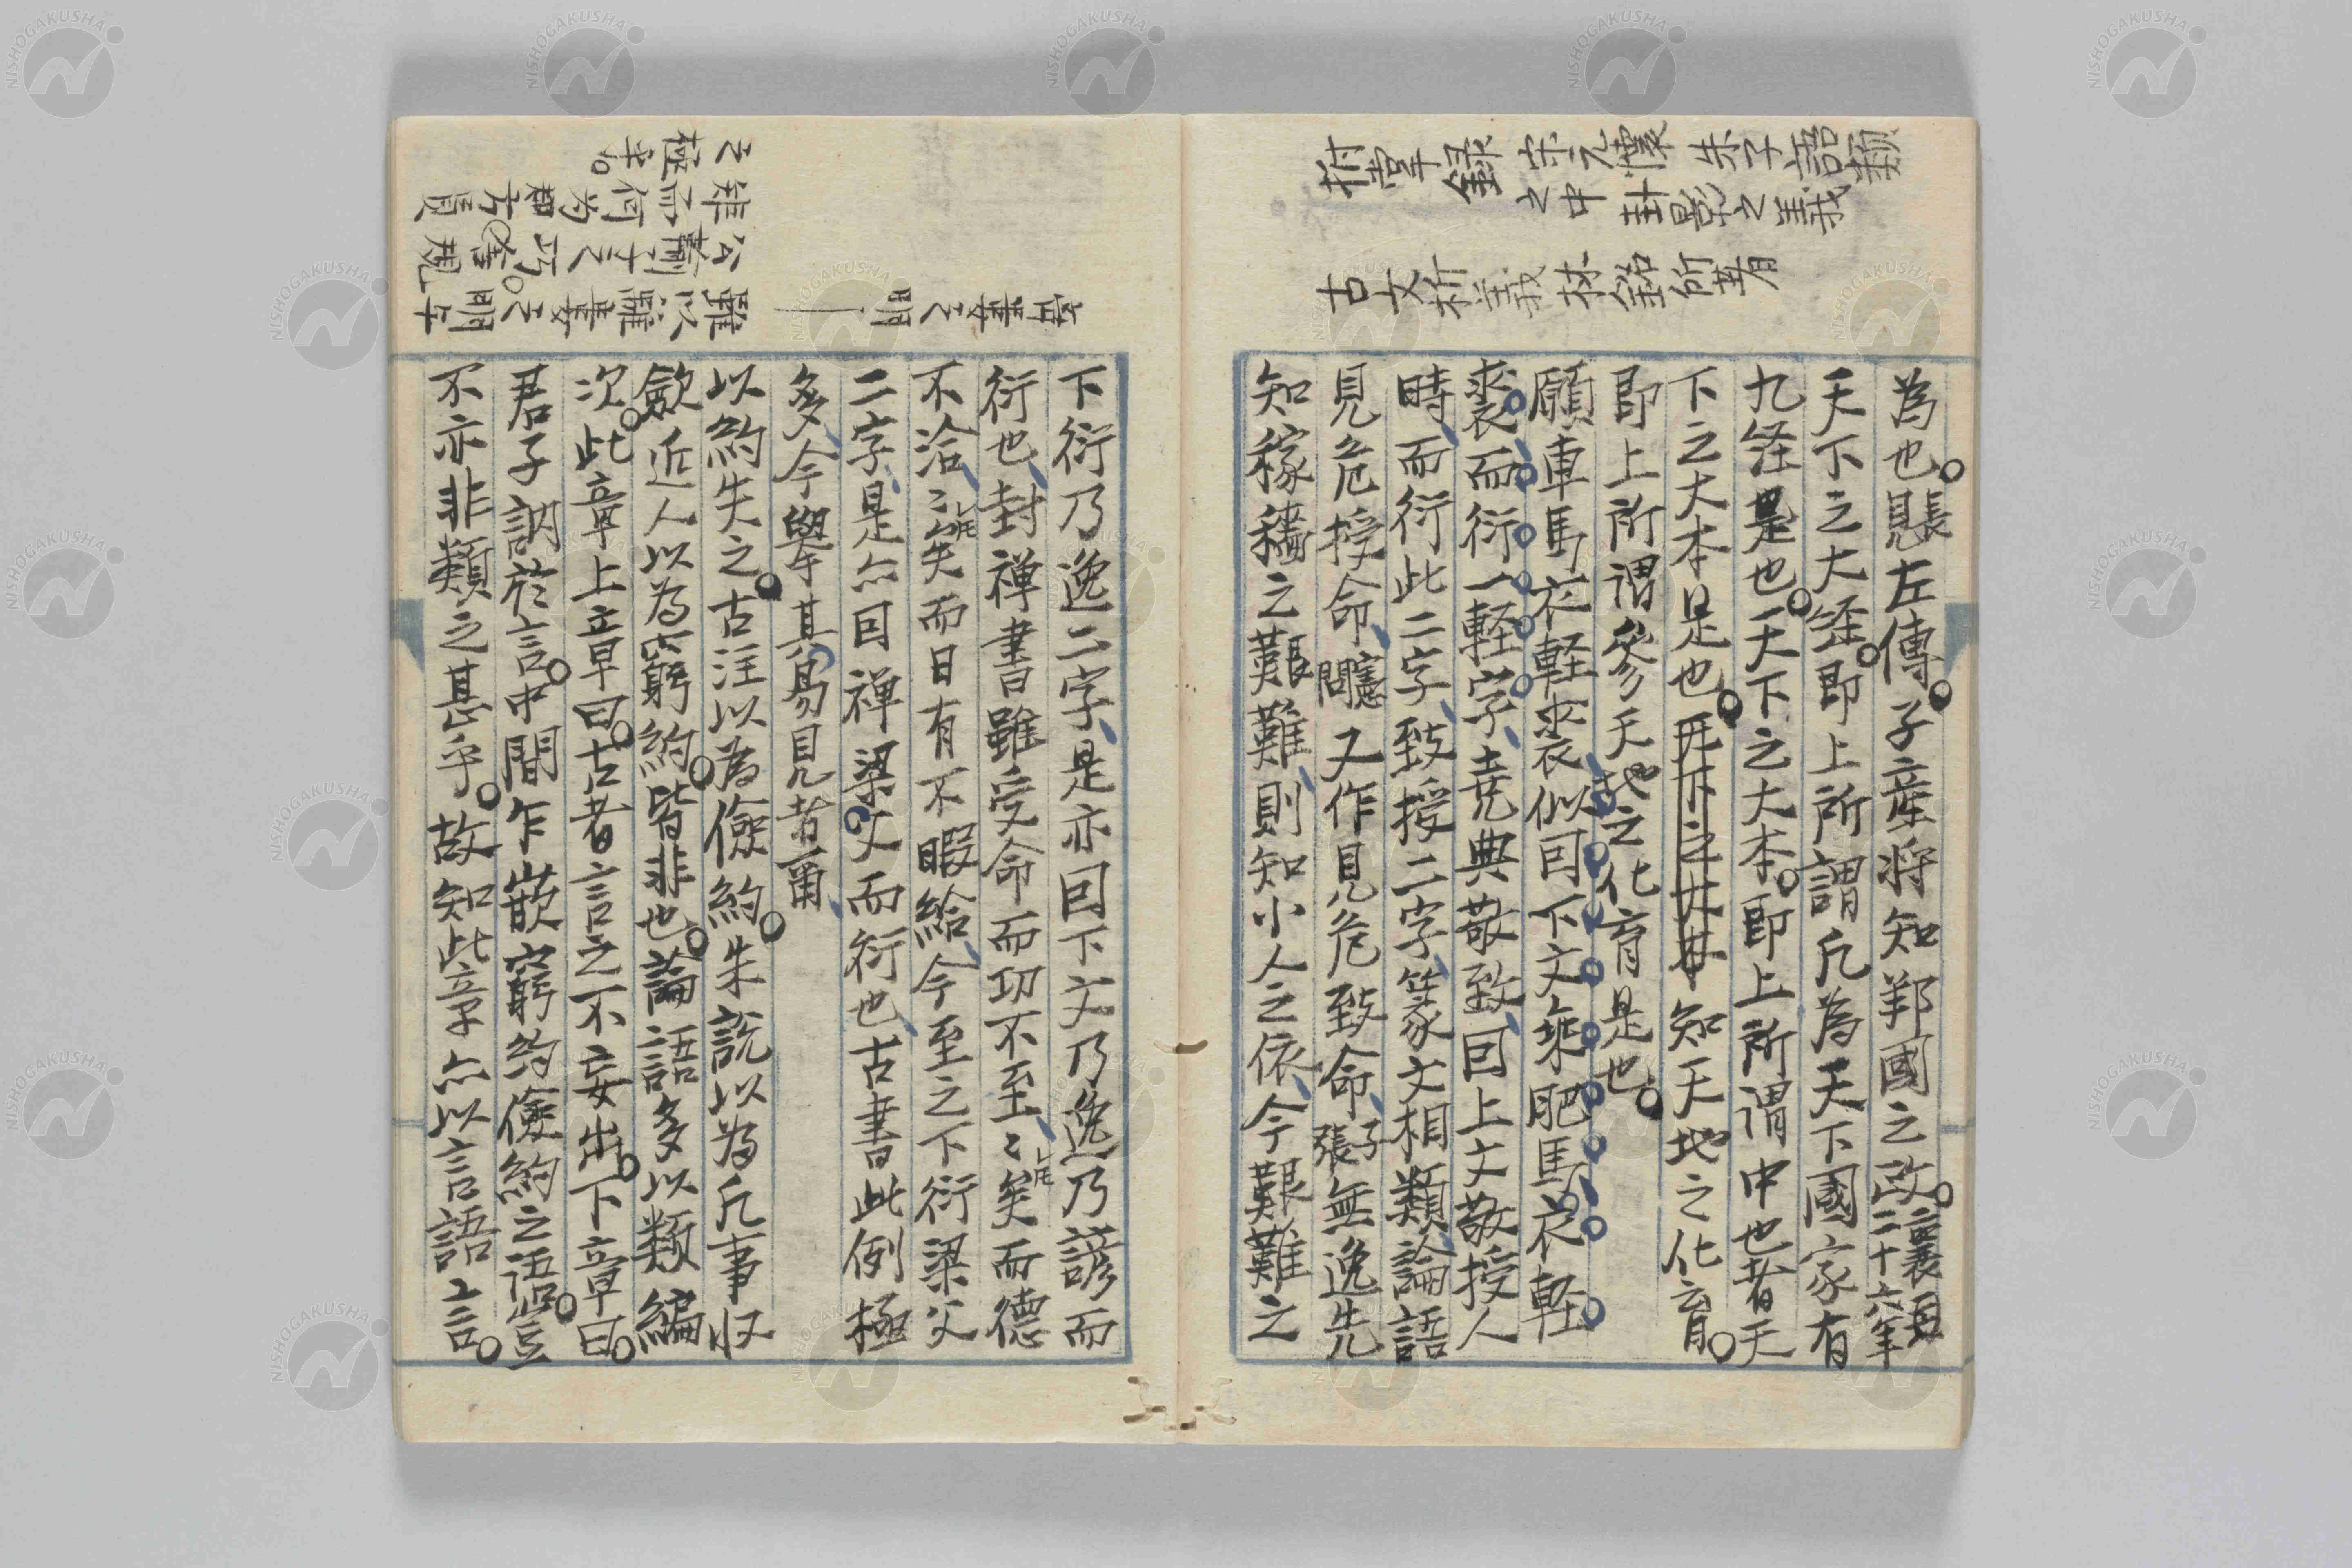 為也。賬左傳。子産将知邦國之政。襄二十六年
天下之大経。即上所謂凡為天下國家有
九経是也。天下之大本。即上所謂中也者天
下之大本是也。知天地之化育。
即上所謂参天地之化育是也。
願車馬衣軽裘似因下文乗肥馬衣軽
裘而衍一軽字、堯典敬致、因上文敬授人
時、而衍此二字、致授二字、篆文相類、論語
見危授命、憲問又作見危致命、子張無逸先
知稼穡之艱難、則知小人之依、今艱難之
下衍乃逸二字、是亦因下文乃逸乃諺而
衍也、封禅書雖受命而功不至、至矣而德
不洽、洽矣而日有不暇給、今至之下衍梁父
二字、是亦因禅梁父而衍也、古書此例極
多、今舉其易見者爾、
以約失之。古注以為儉約。朱説以為凡事収
歛近人以為窮約。皆非也。論語多以類編
次。此章上章曰。古者言之不妄出。下章曰。
君子訥於言。中間乍嵌窮約儉約之語。豈
不亦非類之甚乎。故知此章亦以言語言。
朱子語類
卦影之義
宗元懐
之中
拊掌録
古文析義林鋁所著
離婁之明